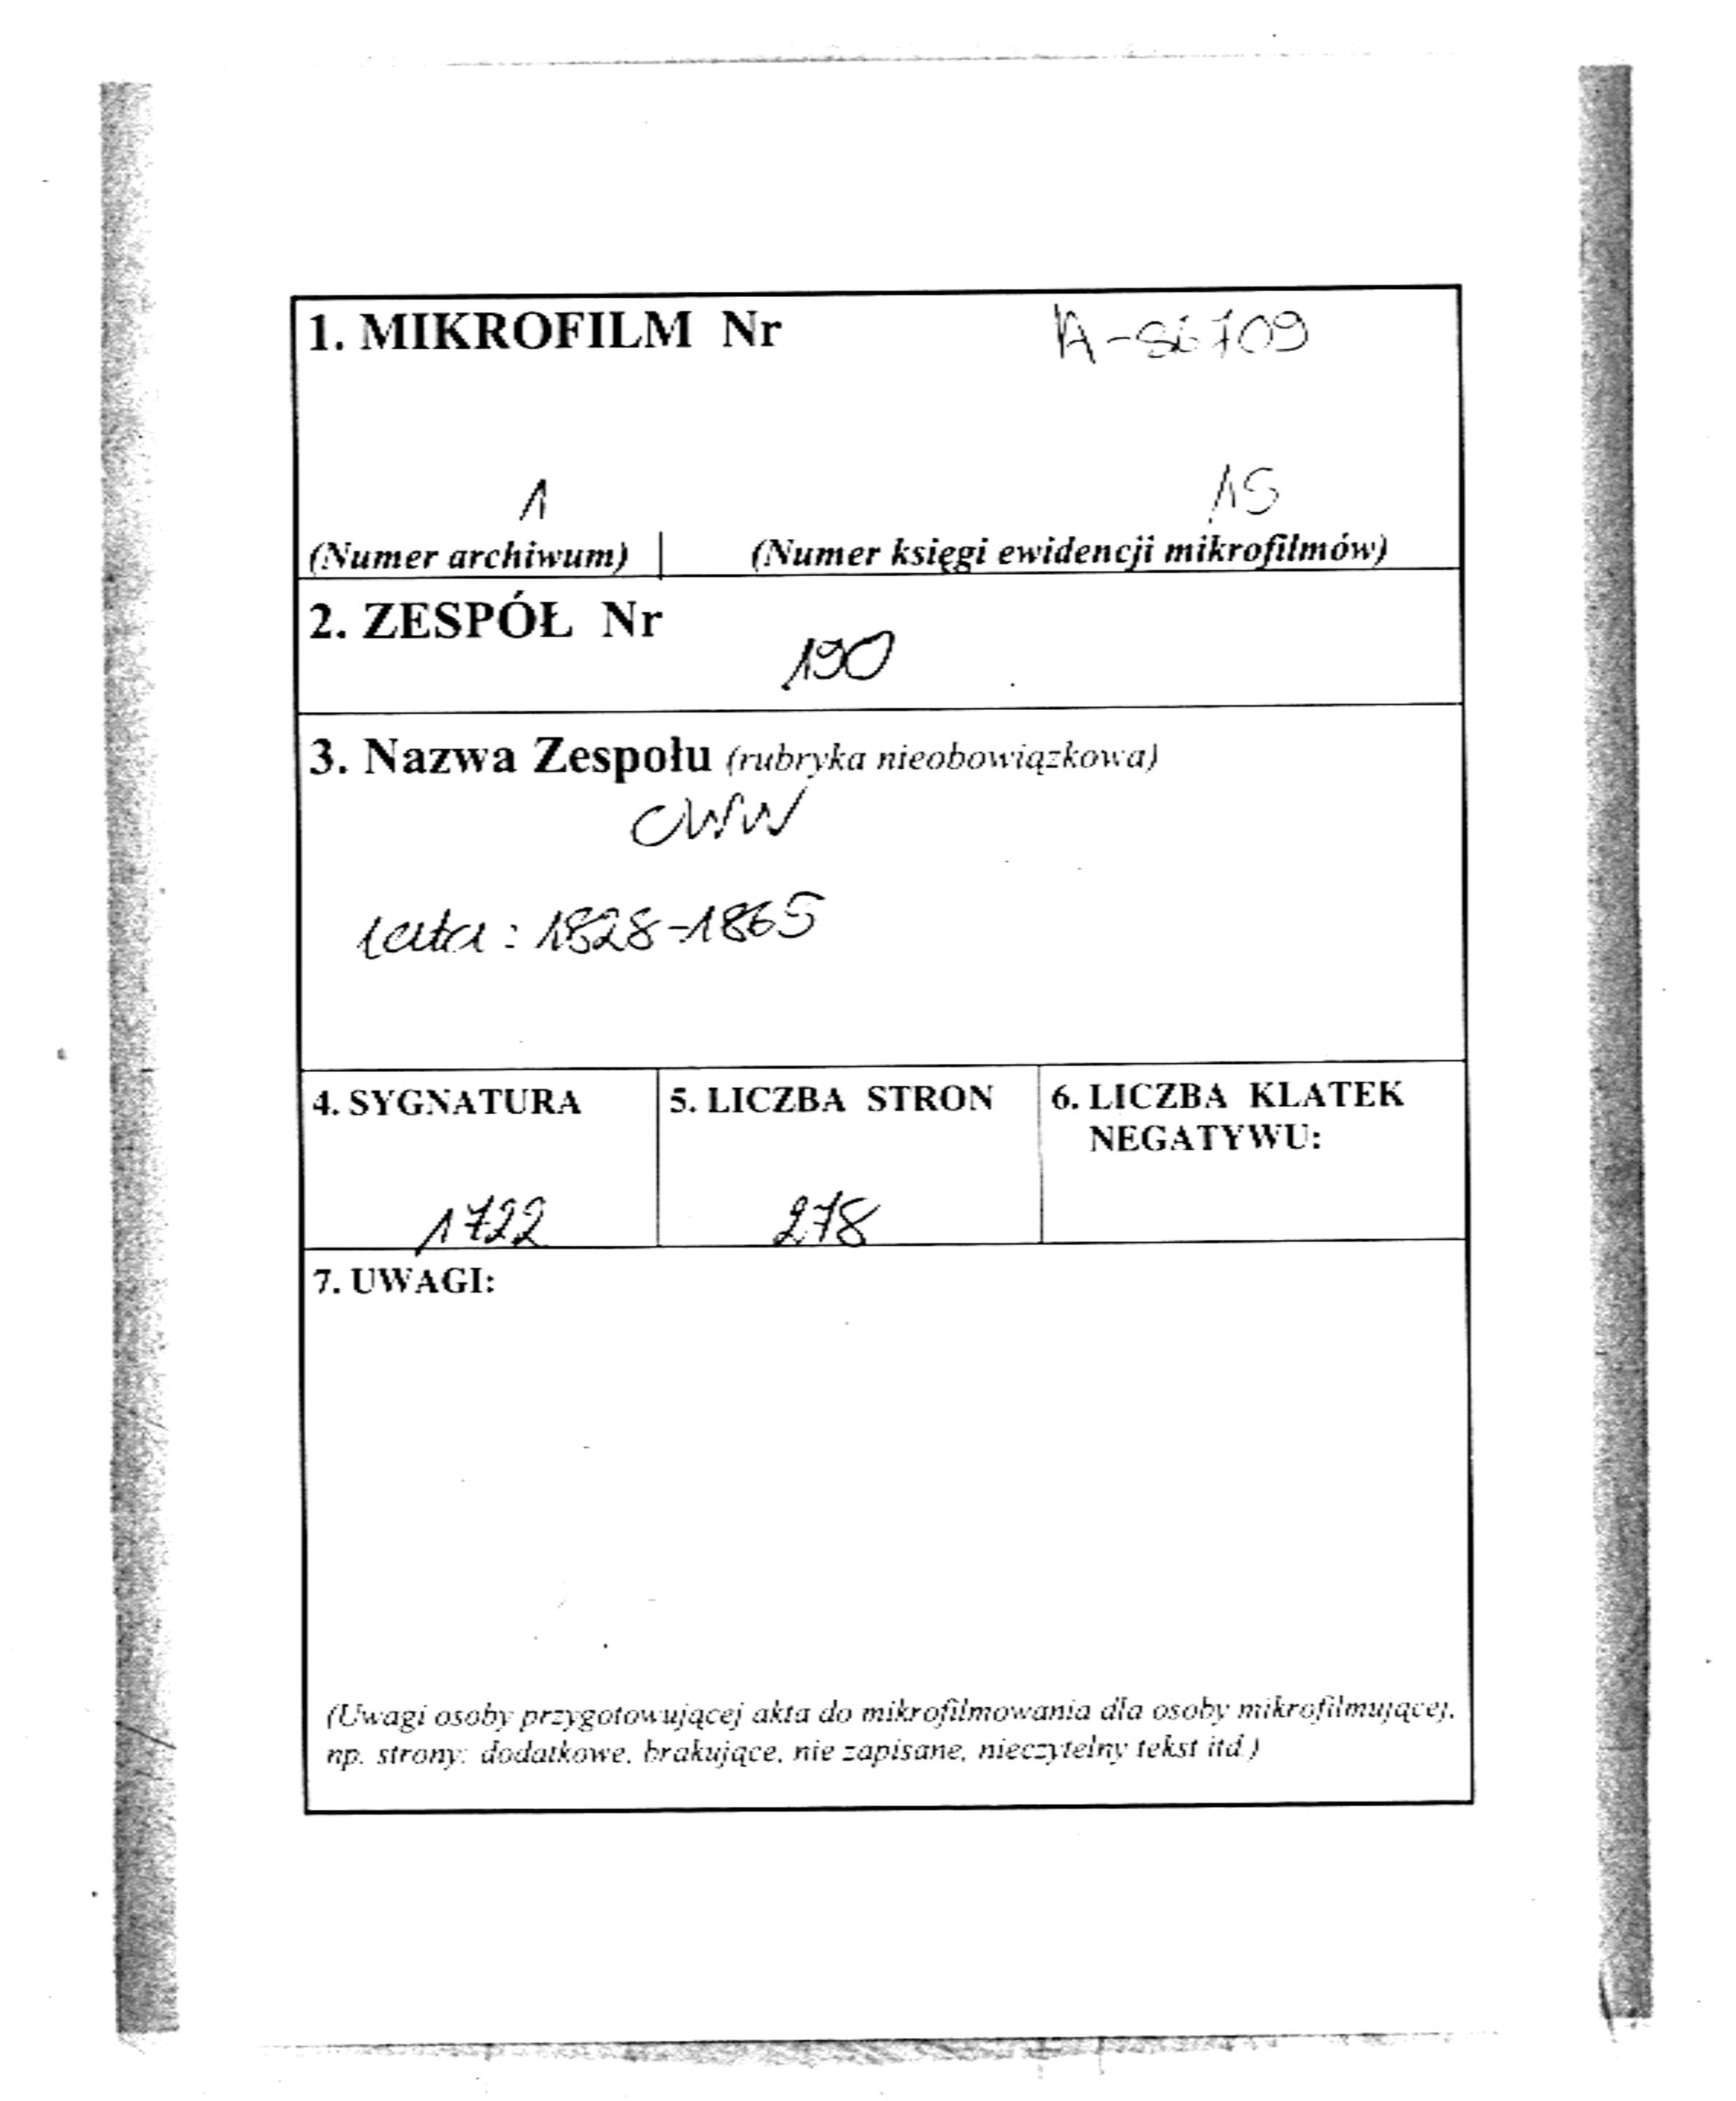 1. MIKROFILM Nr A-86709
1 15
(Numer archiwum) (Numer księgi ewidencji mikrofilmów)
2. ZESPÓŁ Nr
190
3. Nazwa Zespołu (rubryka nieobowiązkowa)
CWW
lata: 1828-1865
4. SYGNATURA
1722
5. LICZBA STRON
278
6. LICZBA KLATEK
NEGATYWU:
7. UWAGI:
(Uwagi osoby przygotowującej akta do mikrofilmowania dla osoby mikrofilmującej,
np. strony: dodatkowe, brakujące, nie zapisane, nieczytelny tekst itd.)